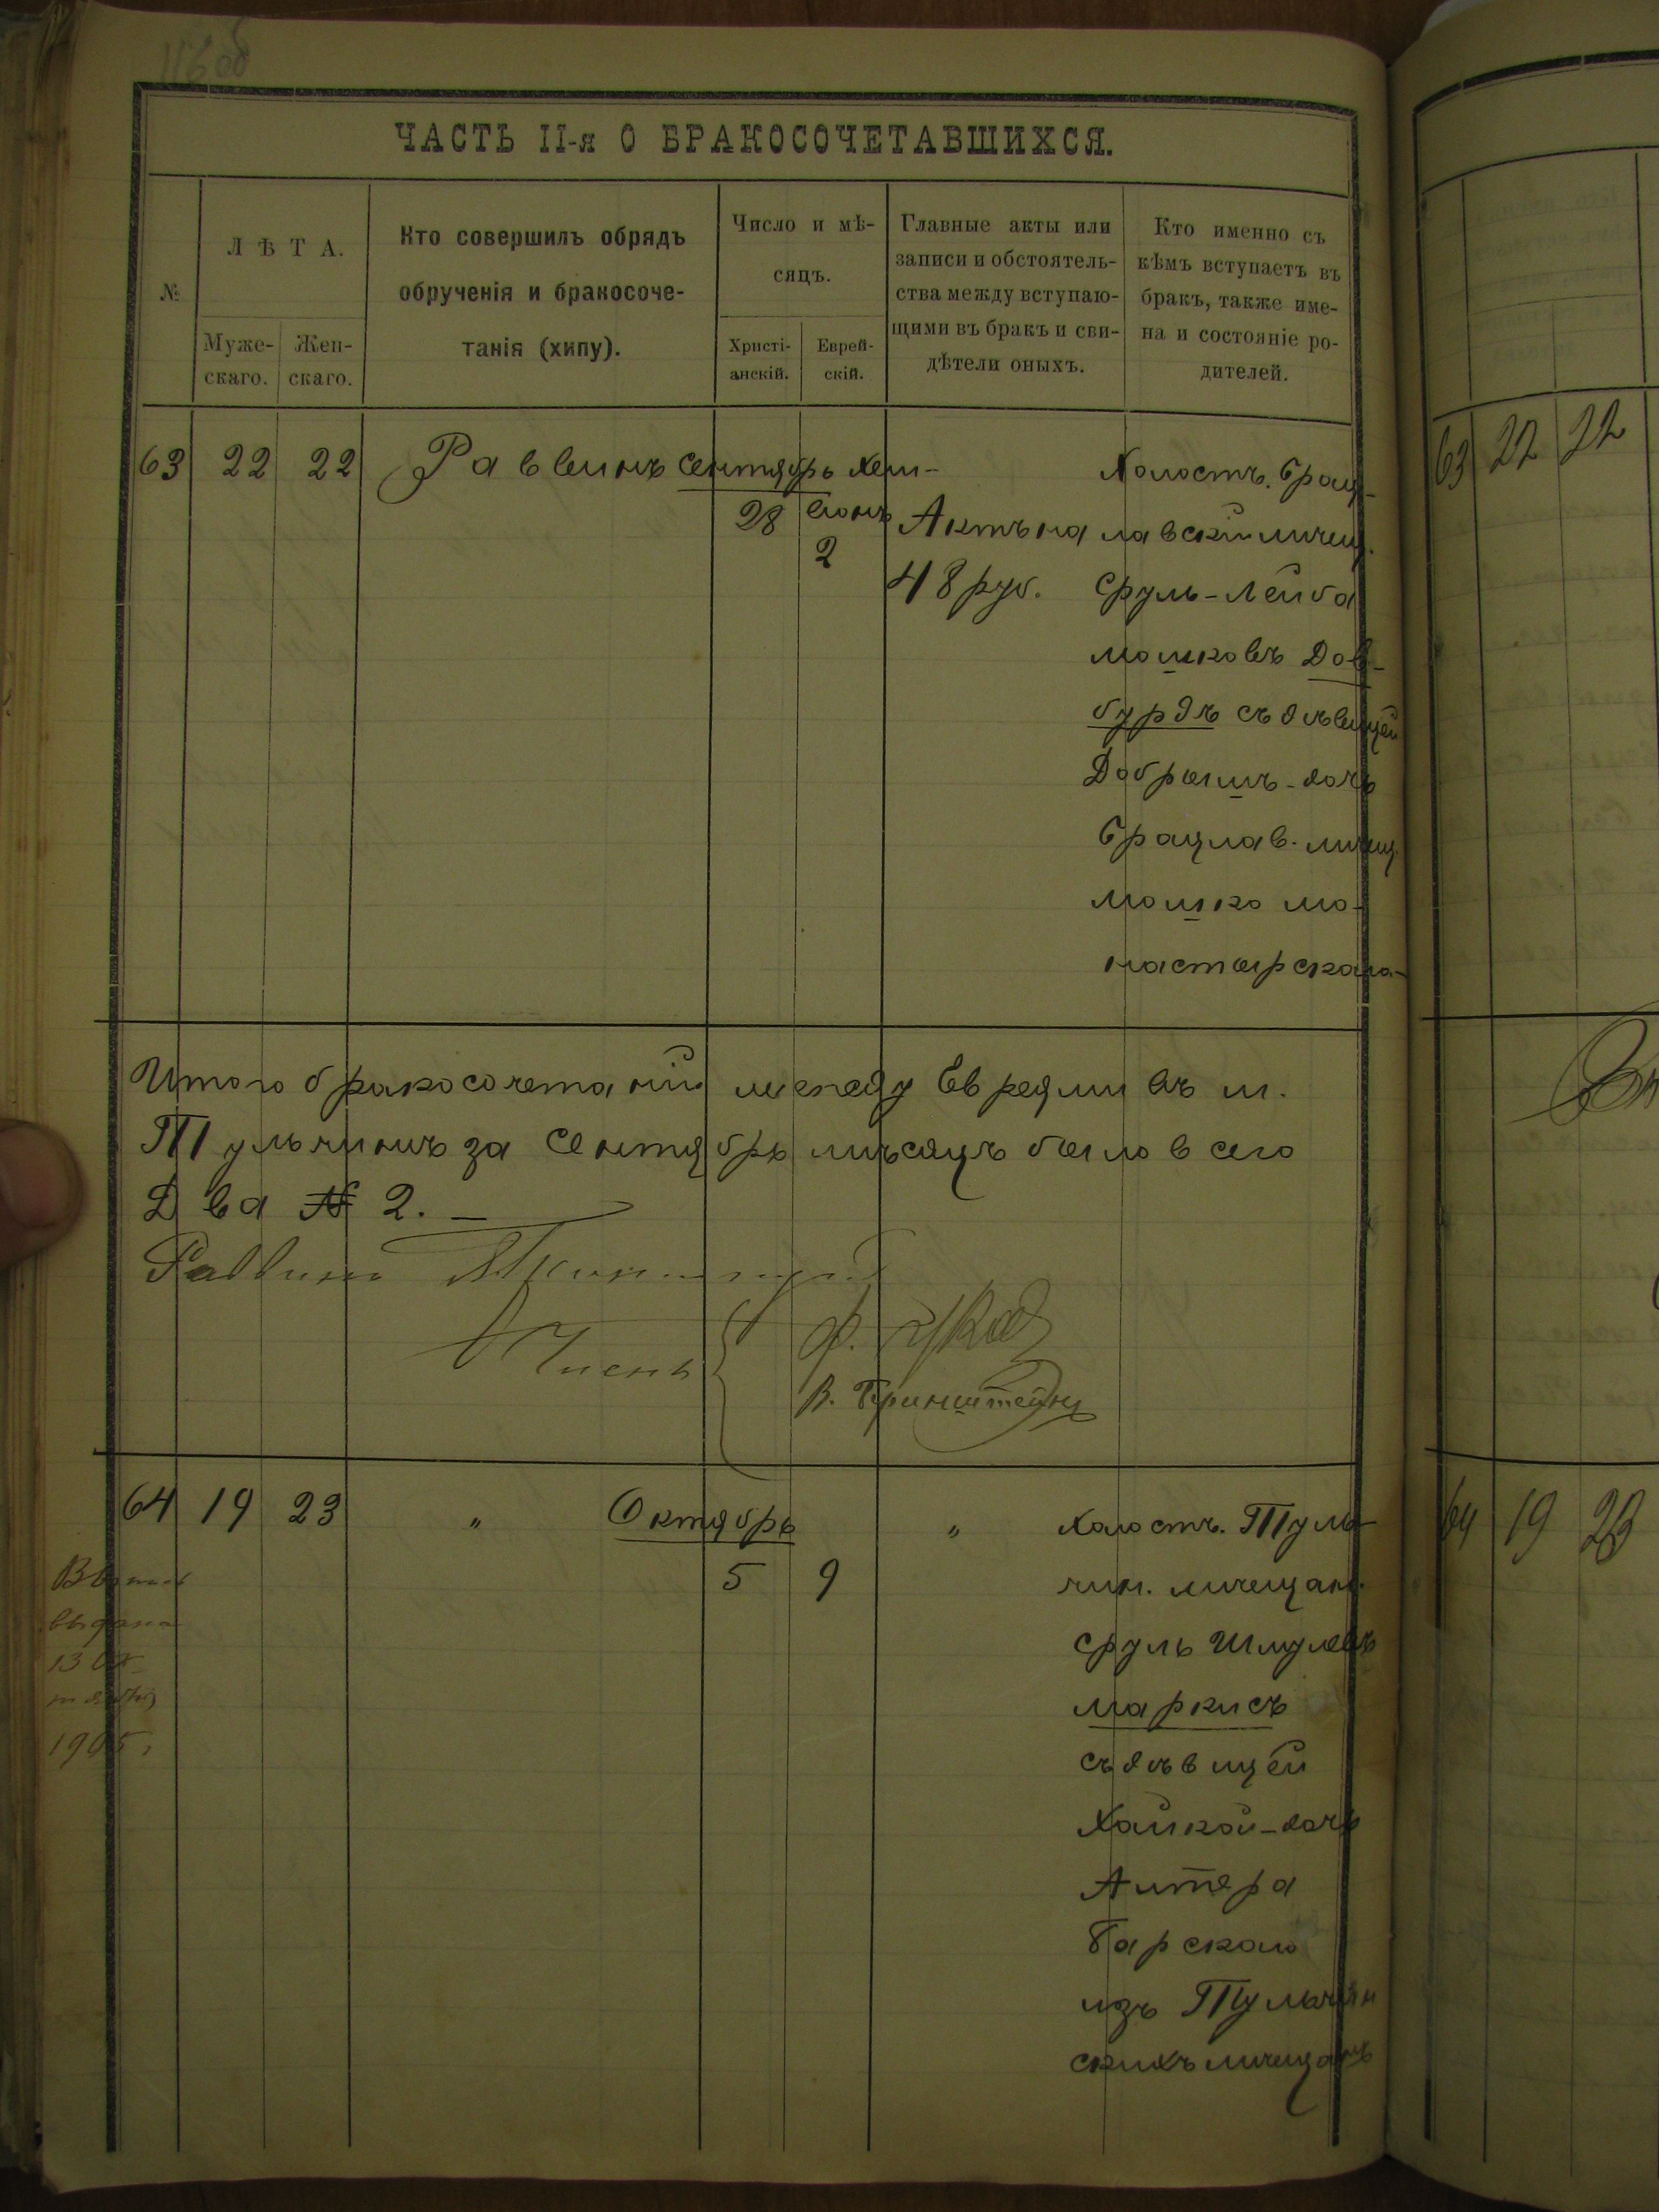 116об
ЧАСТЬ II-я О БРАКОСОЧЕТАВШИХСЯ.
№
ЛѢТА.
Муже-
скаго.
Жен-
скаго.
Кто совершилъ обрядъ
обрученія и бракосоче-
танія (хипу).
Число и мѣ-
сяцъ.
Христі-
анскій.
Еврей-
скій.
Главные акты или
записи и обстоятель-
ства между вступаю-
щими въ бракъ и сви-
дѣтели оныхъ.
Кто именно съ
кѣмъ вступаетъ въ
бракъ, также име-
на и состояніе ро-
дителей.
63 22 22 Раввинъ Сентябрь Хеш-
28
вонъ
2
Актъ на
48 руб.
Холостъ. Брац-
лавскій мѣщ.
Сруль-Лейба
Мошковъ Дов-
бурдъ съ дѣвицей
Добрышъ-дочь
Брацлав. мѣщ.
Мошко Мо-
настырскаго-
Итого бракосочетаній между Евреями въ м.
Тульчинѣ за Сентябрь мѣсяцъ было всего
Два № 2. –
Раввинъ
Члены
В. Бринштейнъ
64 19 23 " Октябрь
5 9
"
Холостъ. Туль-
чин. мѣщан.
Сруль Шмулевъ
Маркисъ
съ дѣвицей
Хайкой-дочь
Алтера
Барскаго
изъ Тульчин
скихъ мѣщанъ
выдана
13 Ок
тября
1905,
63 22 22
64 19 23